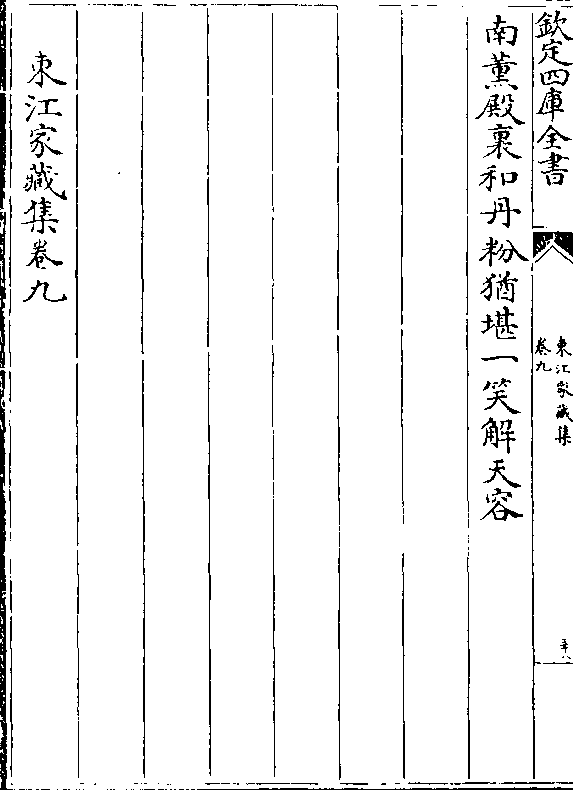 欽定四庫全書
東江家藏集
卷九
五十八
南薰殿裏和丹粉猶堪一笑解天容
東江家藏集卷九